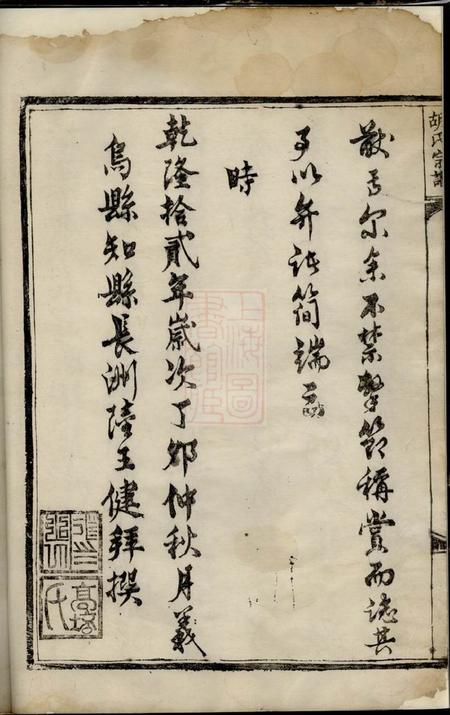 胡氏宗譜
猷云尔余不禁擊節稱賞而誌其
事以弁諸簡端云
時
乾隆拾貳年歲次丁卯仲秋月義
烏縣知縣長洲陸玉健拜撰
上海圖書館